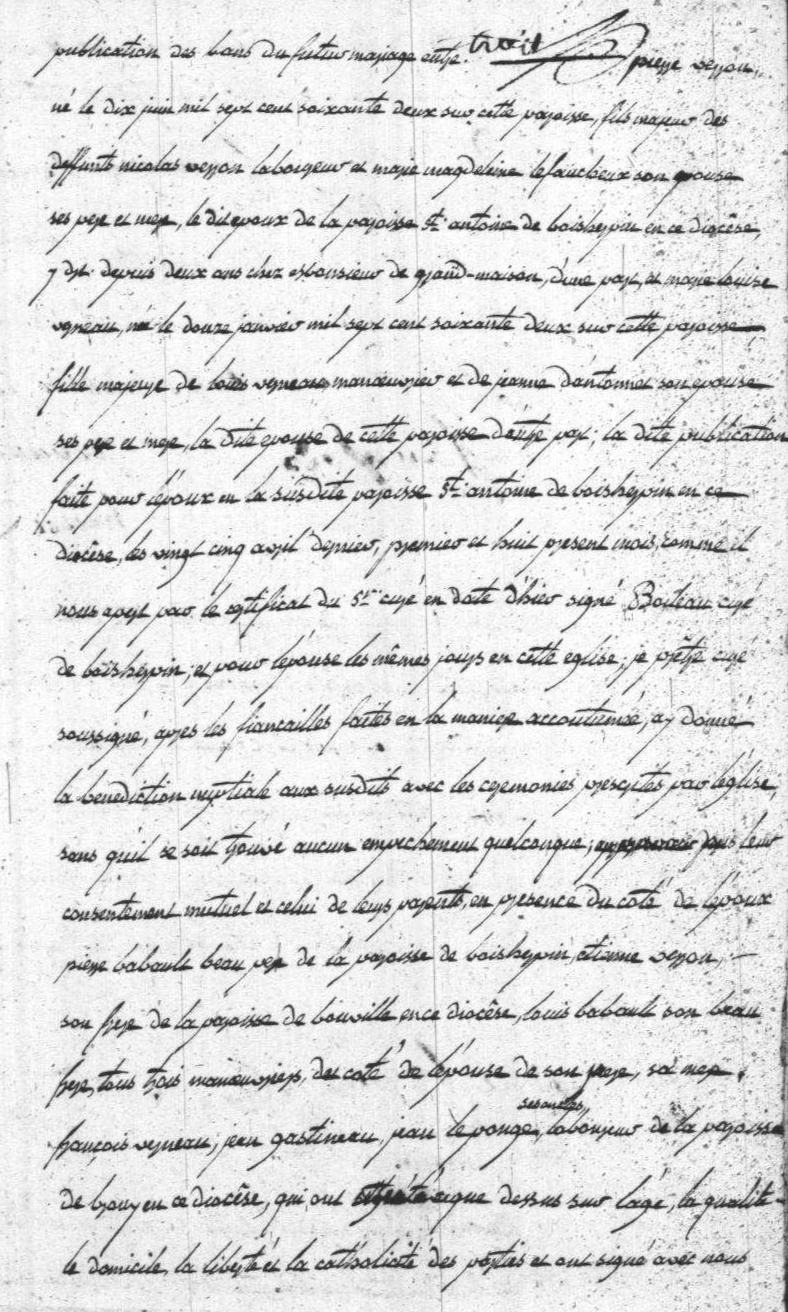 publication des bans du futur mariage entre. trait pierre verron,
né le dix juin mil sept cent soixante deux sur cette paroisse, fils majeur des
deffunts nicolas verron laboureur et marie magdeleine lefaucheux son epouse
ses pere et mere, le dit epoux de la paroisse St. antoine de boisherpin en ce diocêse,
y dt. depuis deux ans chez monsieur de grand-maison, d'une part, et marie louise
verneau, née le douze janvier mil sept cent soixante deux sur cette paroisse
fille majeure de louis verneau manoeuvrier et de jeanne dantonnet son epouse
ses pere et mere, la dite epouse de cette paroisse d'autre part; la dite publication
faite pour l'époux en la susdite paroisse St. antoine de boisherpin en ce
diocêse, les vingt cinq avril dernier, premier et huit present mois, comme il
nous apert par le certificat du Sr. curé en date d'hier signé Boileau curé
de boisherpin; et pour l'épouse les mêmes jours en cette eglise; je prêtre curé
soussigné, apres les fiancailles faites en la maniere accoutumée, ay donné
la benediction nuptiale aux susdits avec les ceremonies prescrites par l'église,
sans qu'il se soit trouvé aucun empechement quelconque; leur
consentement mutuel et celui de leurs parents, en presence du coté de l'époux
pierre babault beau pere de la paroisse de boisherpin, etienne verron,
son frere de la paroisse de bouville en ce diocêse, louis babault son beau
frere, tous trois manoeuvriers, du coté de l'épouse de son pere, sa mere,
françois verneau, jean gastineau, jean leponge, ses oncles, laboureur de la paroisse
de en ce diocêse, qui ont que dessus sur l'age, la qualité
le domicile, la liberté et la catholicité des parties et ont signé avec nous